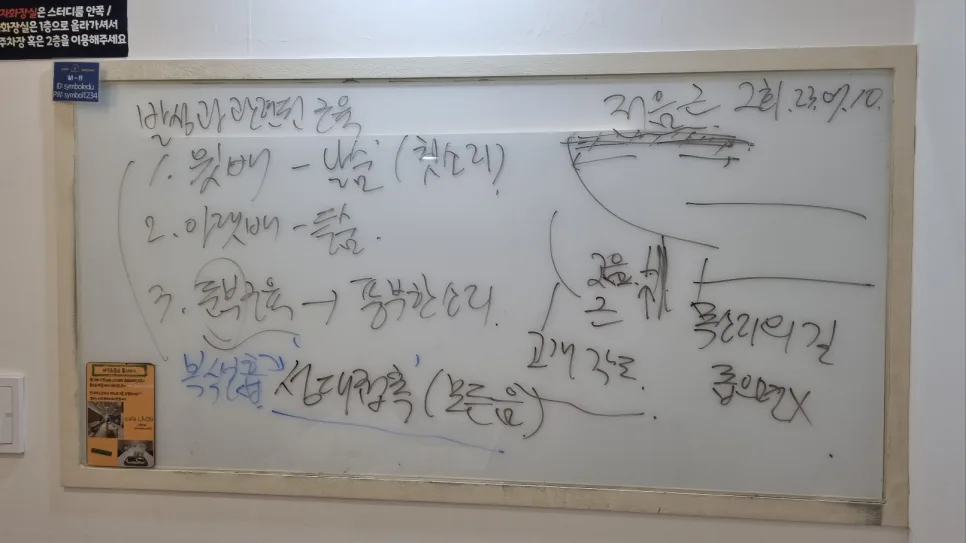 자화장실은 스터디룸 안쪽 /
화장실은 1층으로 올라가셔서
주차장 혹은 2층을 이용해주세요
ID:symboledu
PW:symbol1234
발성과 관련된 근육
저음근 2회. 23.07.10.
1. 윗배 - 날숨 (첫소리)
2. 아랫배 - 들숨.
3. 등부근육 → 풍부한 소리.
고음근
목소리의 길
고개 각도.
좁으면X
복식호흡 '성대접촉' (모든음)